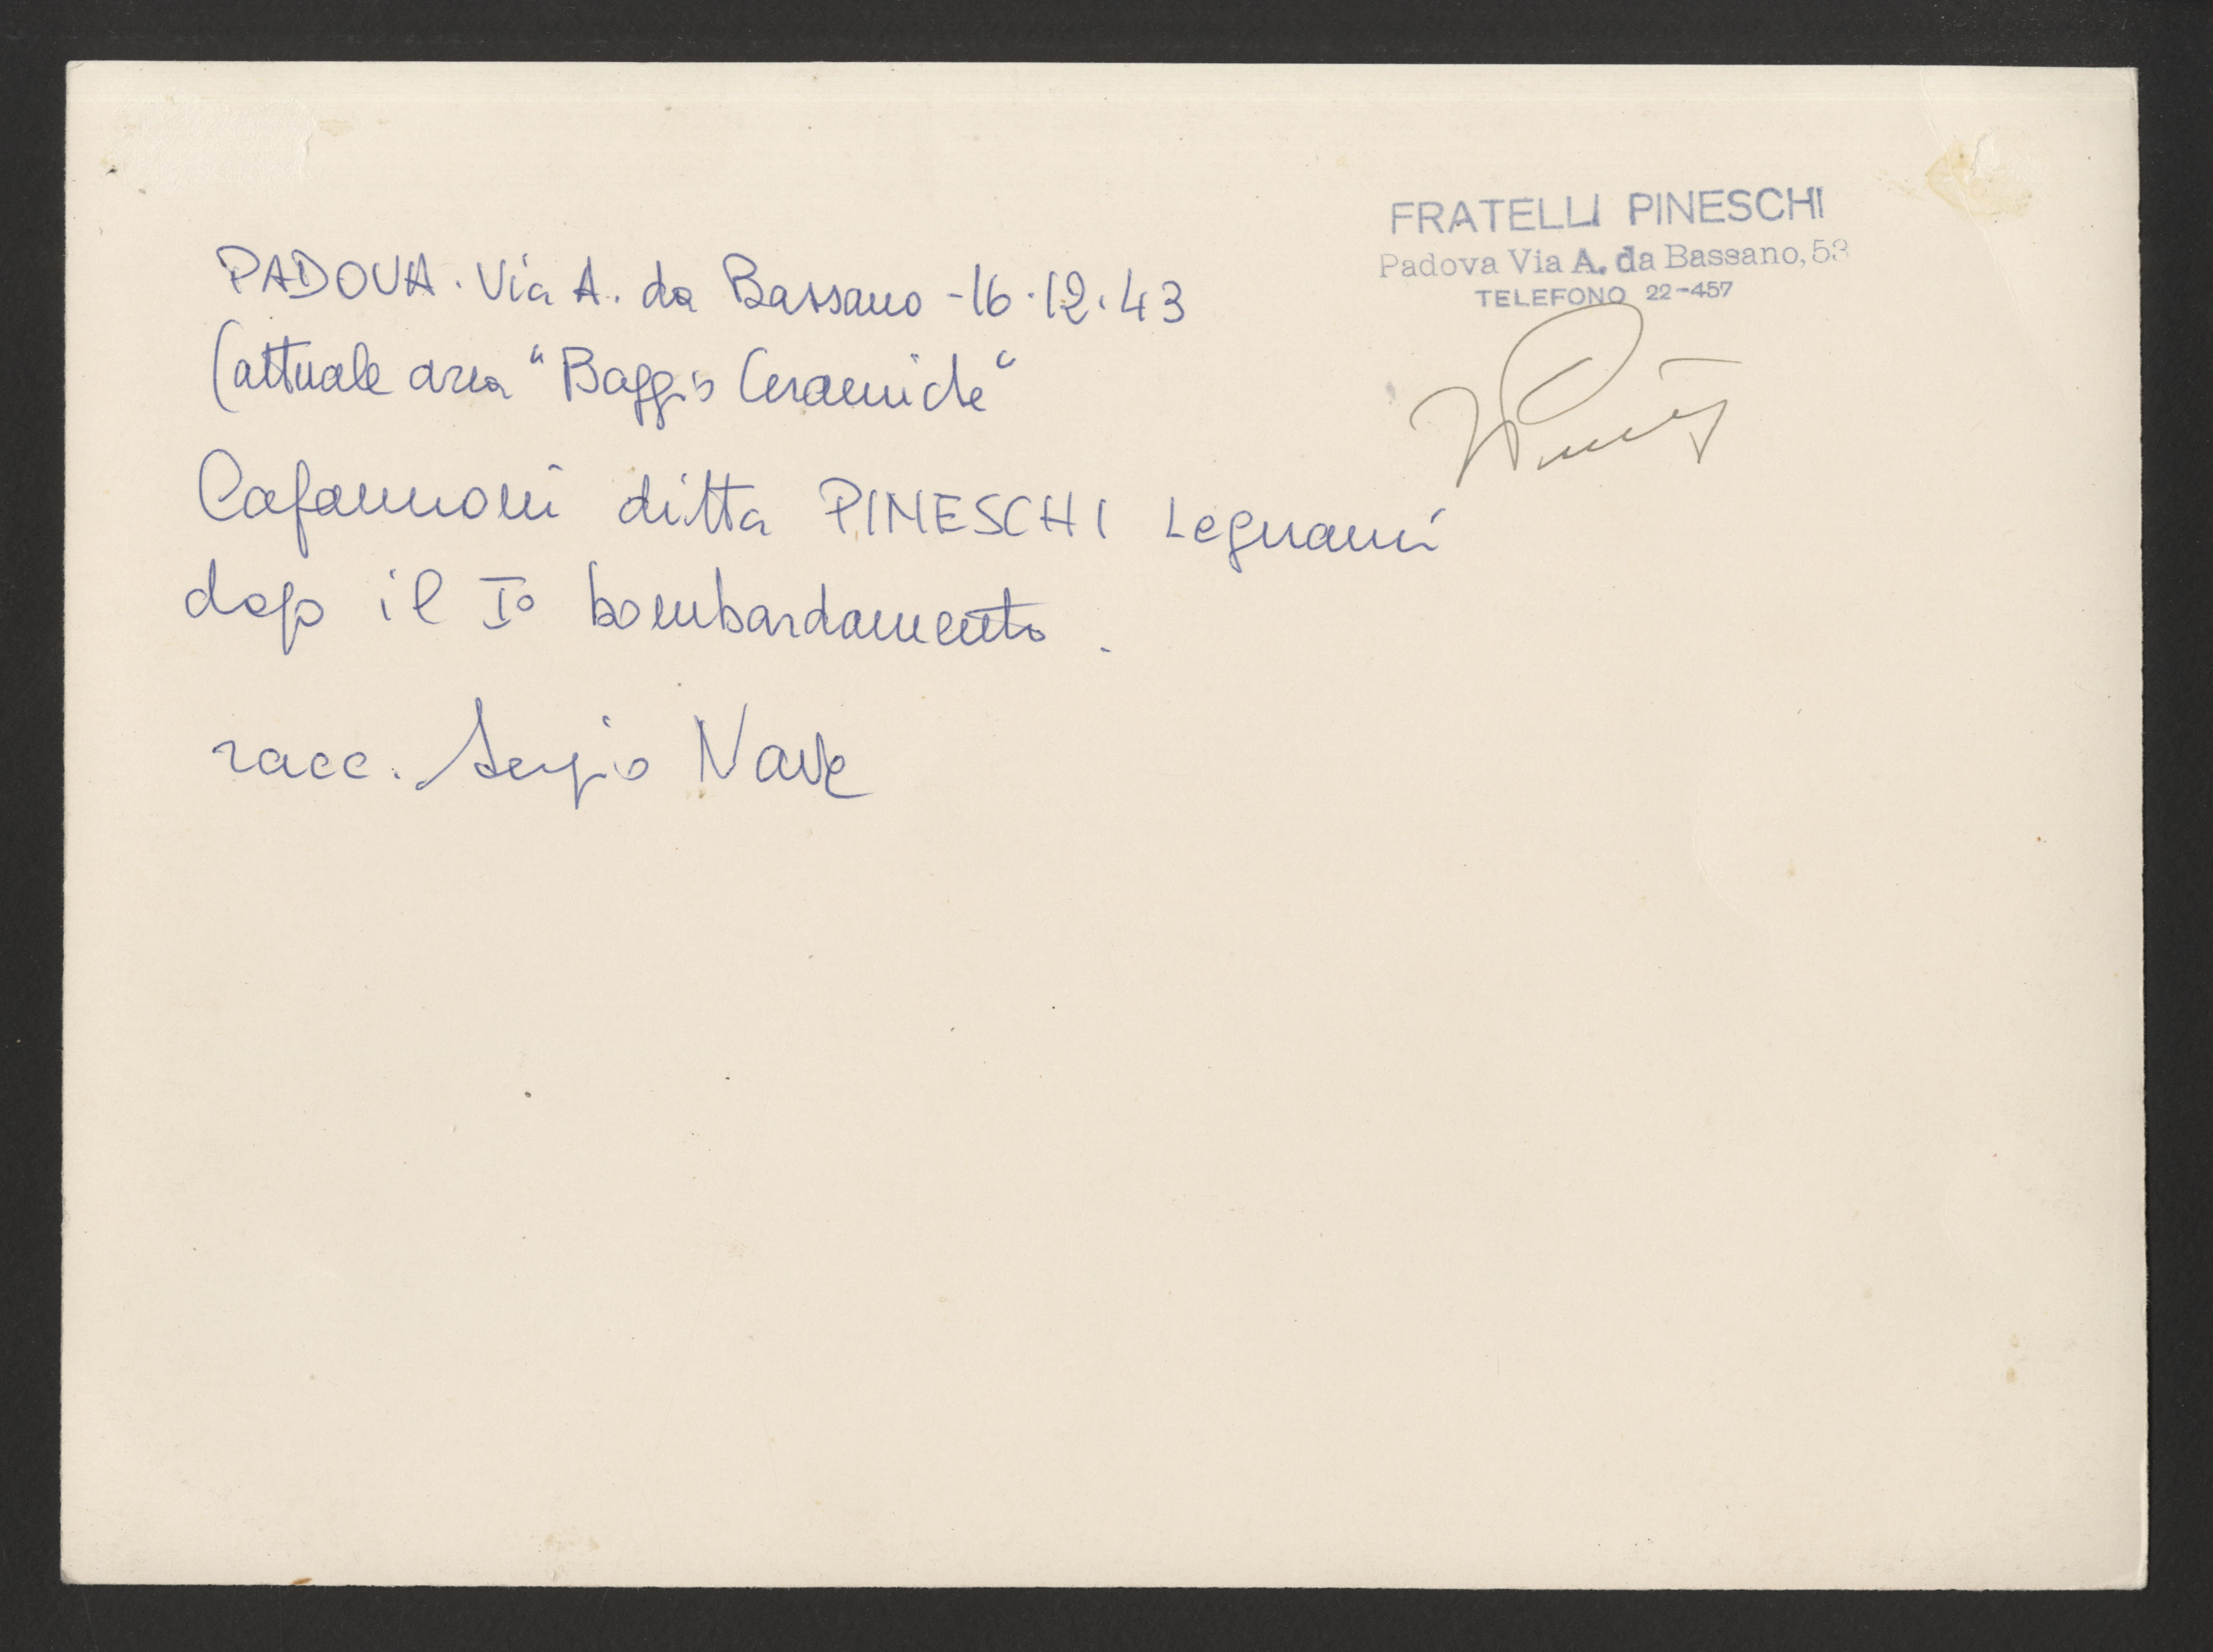 PADOVA. Via A. da Bassano - 16.12.43
(attuale area "Baggio Ceramiche"
Capannoni ditta PINESCHI Legnami
dopo il I° bombardamento.
racc. Sergio Nave
FRATELLI PINESCHI
Padova Via A. da Bassano, 53
TELEFONO 22-457